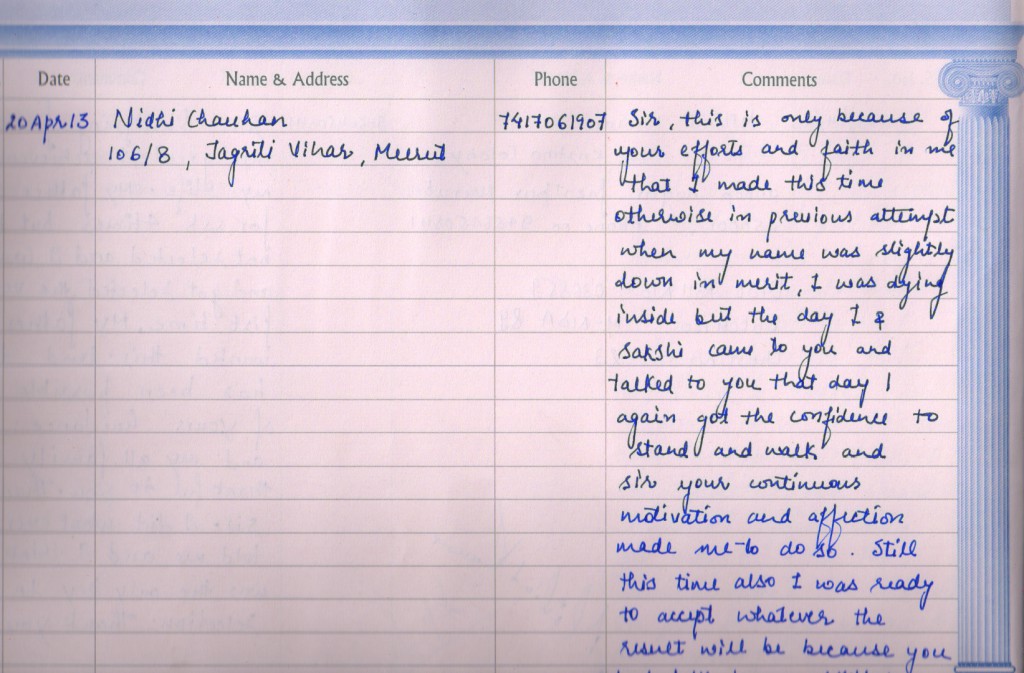 Date Name & Address Phone Comments
20 Apr 13 Nidhi Chauhan 7417061907 Sir, this is only because of
106/8, Jagriti Vihar, Meerut your efforts and faith in me
that I made this time
otherwise in previous attempt
when my name was slightly
down in merit, I was dying
inside but the day I &
Sakshi came to you and
talked to you that day I
again got the confidence to
stand and walk and
sir your continuous
motivation and affection
made me to do so. Still
this time also I was ready
to accept whatever the
result will be because you